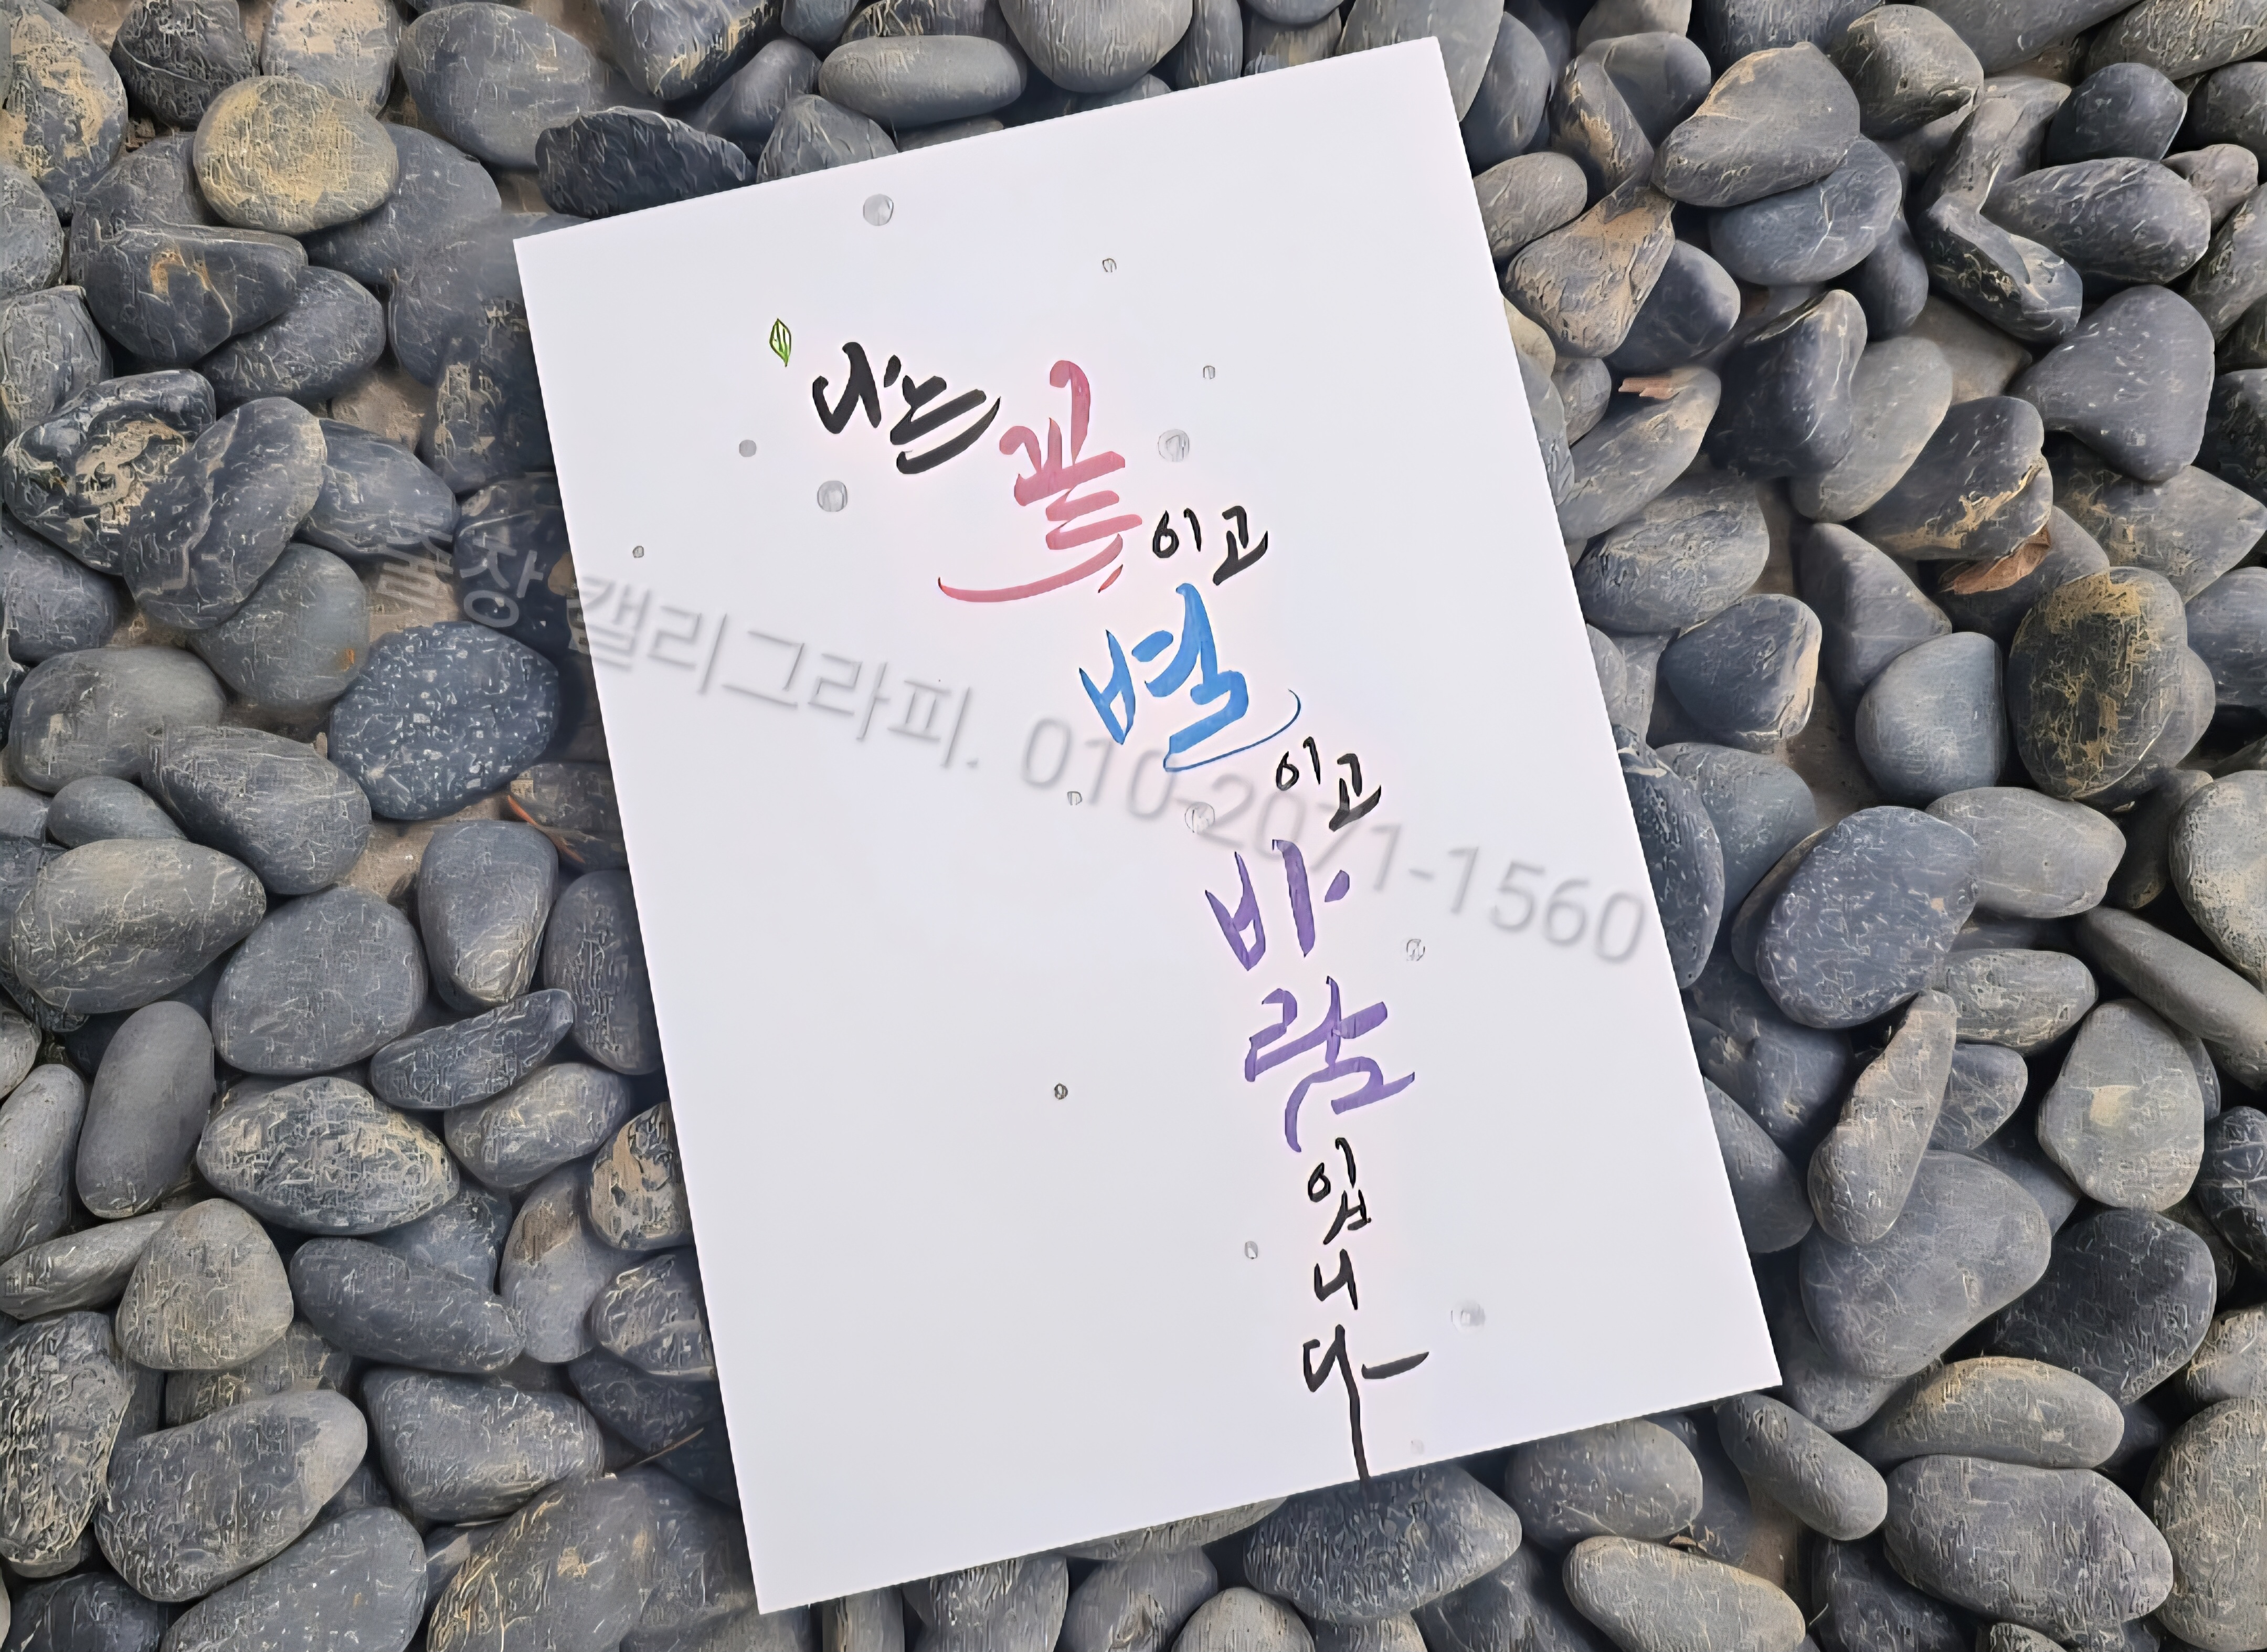 나는
꽃이고
별이고
바
람
입
니
다
출장 캘리그라피. 010-2071-1560